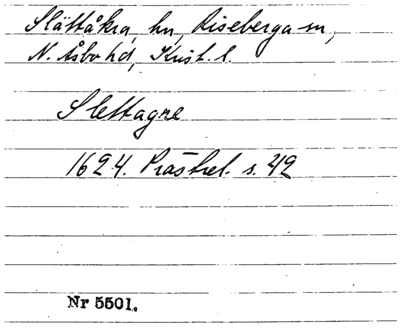 Slättåkra, hn, Riseberga sn,
N. Åsbo hd, Krist. l.
Slettagre
1624. Prästrel. s. 42
Nr 5501.